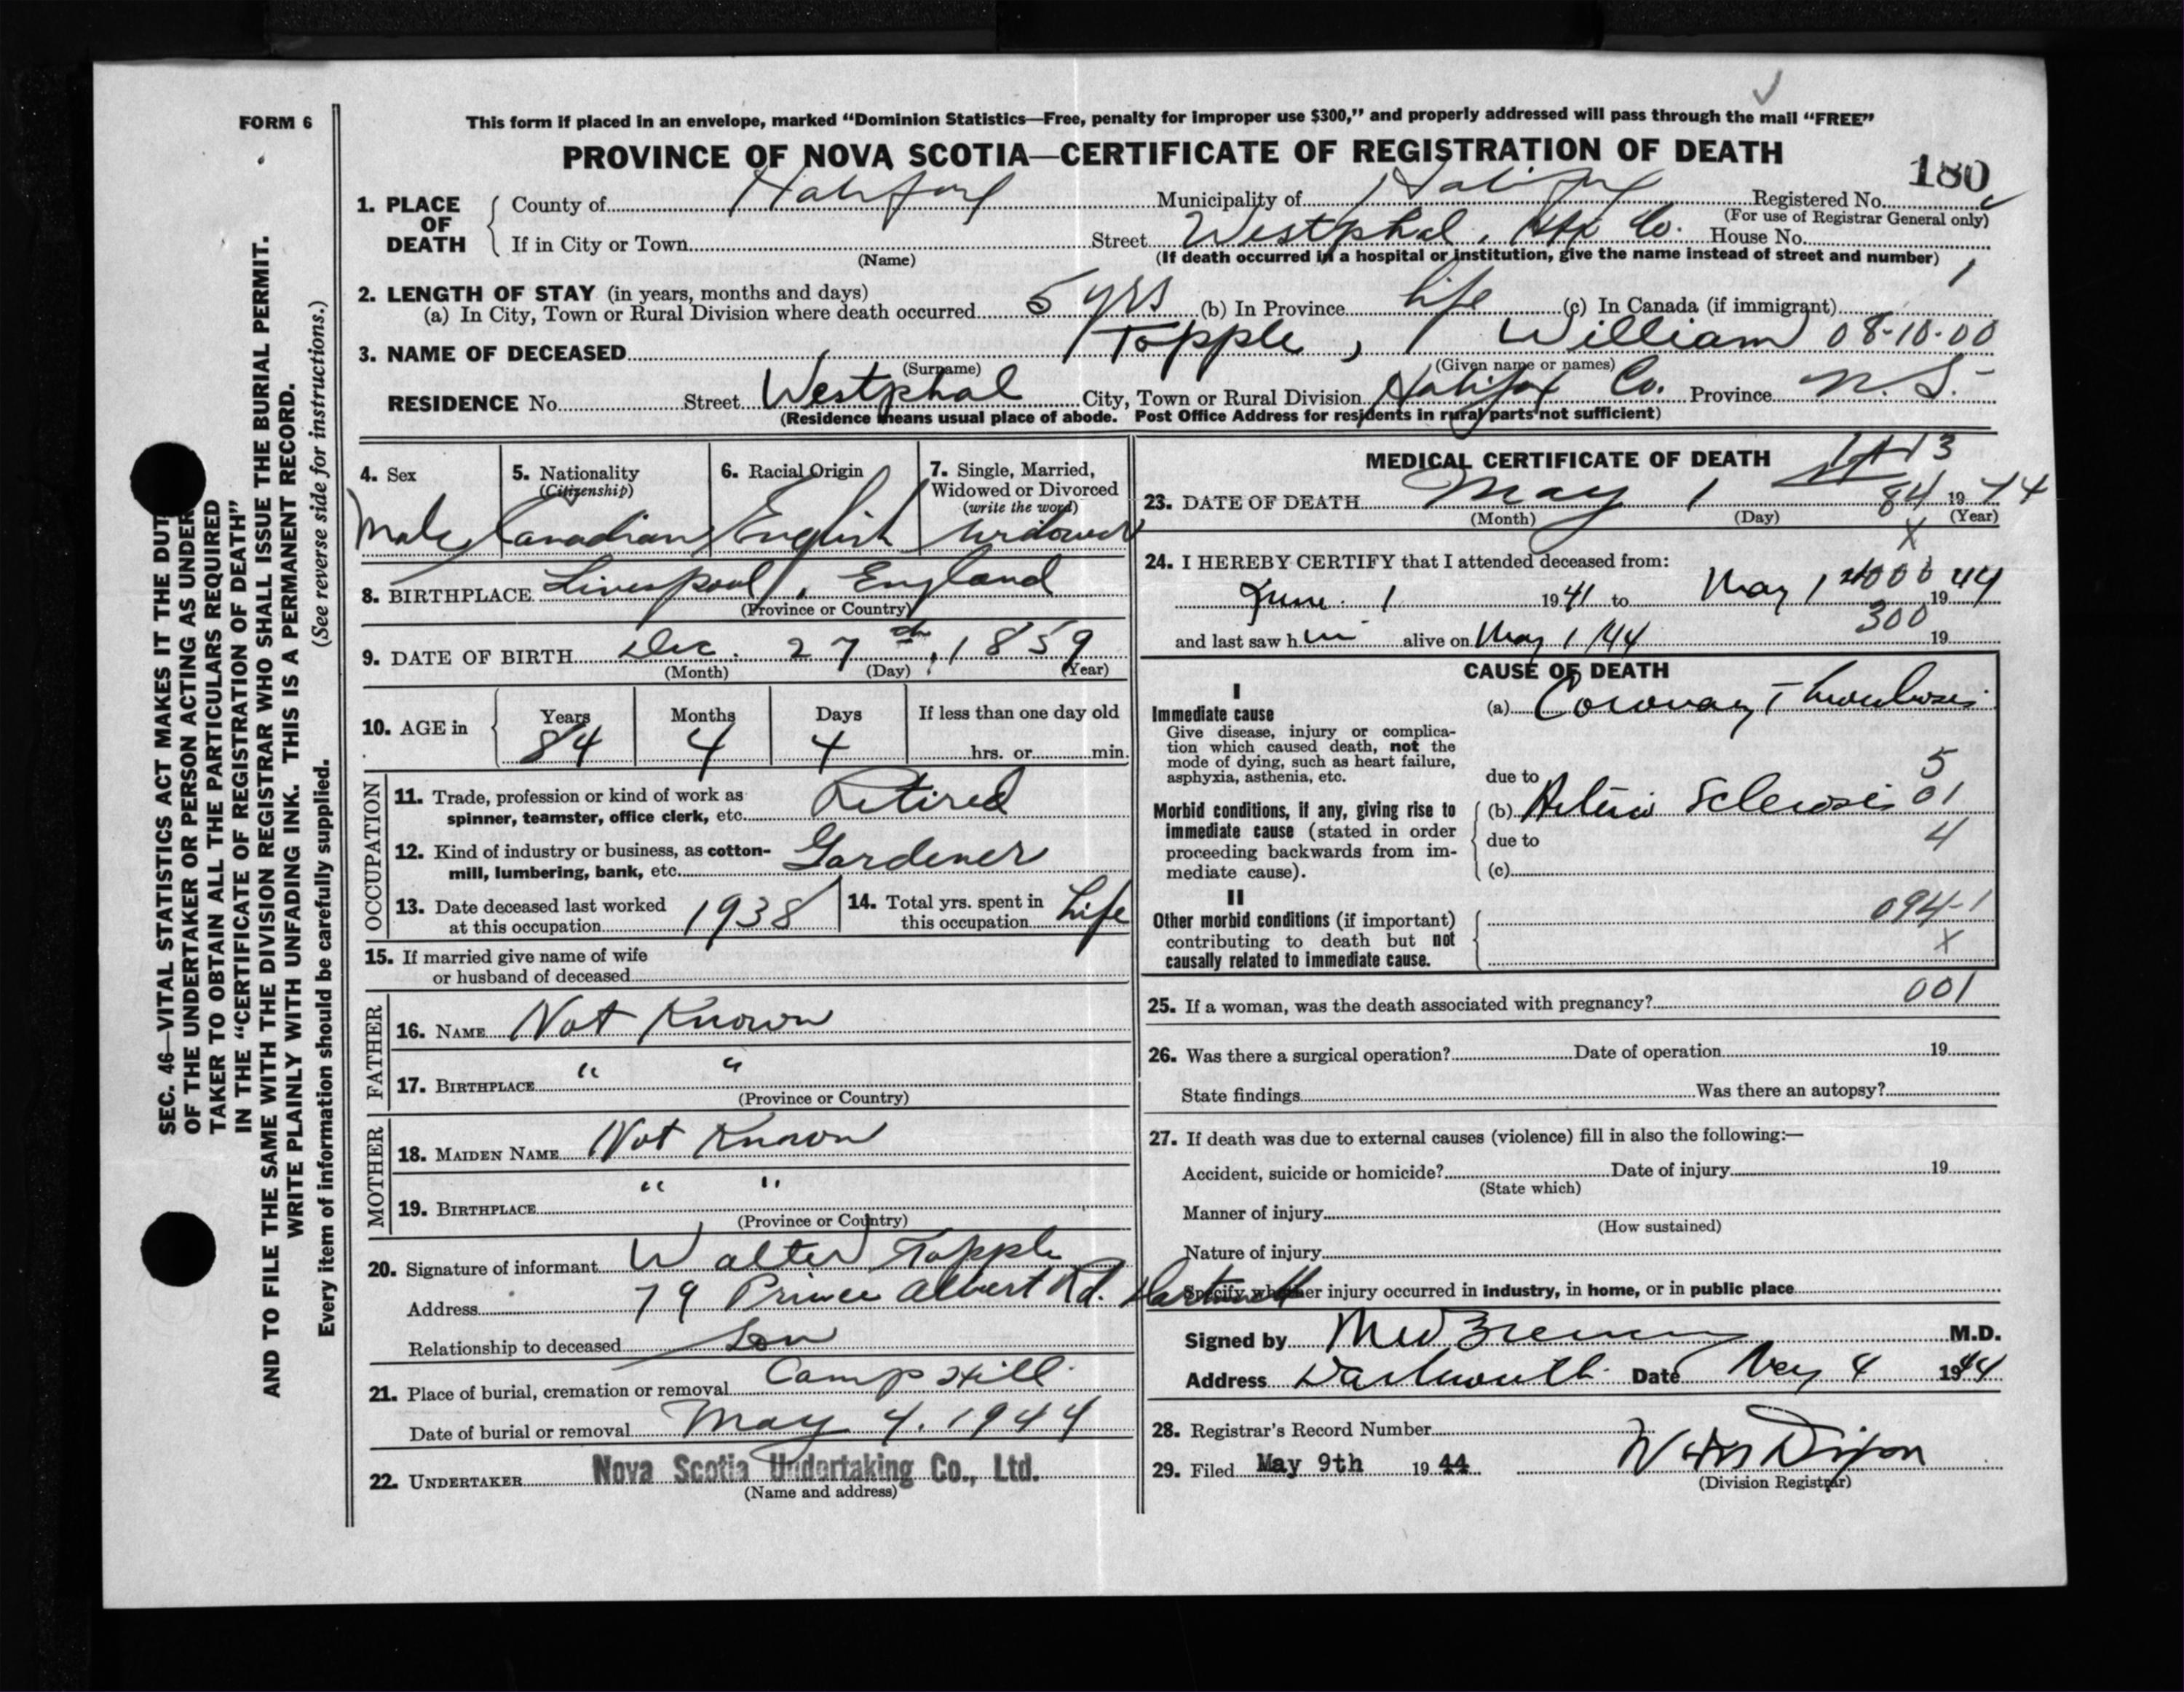 FORM 6
This form if placed in an envelope, marked “Dominion Statistics—Free, penalty for improper use $300,” and properly addressed will pass through the mail “FREE”
PROVINCE OF NOVA SCOTIA—CERTIFICATE OF REGISTRATION OF DEATH
180
1. PLACE OF DEATH
County of Halifax Municipality of Halifax Registered No.
(For use of Registrar General only)
If in City or Town Street Westphal, Hfx Co. House No.
(Name) (If death occurred in a hospital or institution, give the name instead of street and number)
2. LENGTH OF STAY (in years, months and days)
(a) In City, Town or Rural Division where death occurred 5 yrs (b) In Province life (c) In Canada (if immigrant)
3. NAME OF DECEASED Topple, William 08-10-00
(Surname) (Given name or names)
RESIDENCE No. Street Westphal City, Town or Rural Division Halifax Co. Province N.S.
(Residence means usual place of abode. Post Office Address for residents in rural parts not sufficient)
4. Sex
Male
5. Nationality
(Citizenship)
Canadian
6. Racial Origin
English
7. Single, Married,
Widowed or Divorced
(write the word)
widower
8. BIRTHPLACE Liverpool, England
(Province or Country)
9. DATE OF BIRTH Dec. 27th, 1859
(Month) (Day) (Year)
10. AGE in
Years Months Days If less than one day old
84 4 4 hrs. or min.
OCCUPATION
11. Trade, profession or kind of work as
spinner, teamster, office clerk, etc. Retired
12. Kind of industry or business, as cotton-
mill, lumbering, bank, etc. Gardener
13. Date deceased last worked
at this occupation 1938
14. Total yrs. spent in
this occupation Life
15. If married give name of wife
or husband of deceased
FATHER
16. NAME Not Known
17. BIRTHPLACE “ “
(Province or Country)
MOTHER
18. MAIDEN NAME Not Known
19. BIRTHPLACE “ “
(Province or Country)
20. Signature of informant Walter Topple
Address 79 Prince Albert Rd. Dartmouth
Relationship to deceased Son
21. Place of burial, cremation or removal Camp Hill
Date of burial or removal May 4, 1944
22. UNDERTAKER Nova Scotia Undertaking Co., Ltd.
(Name and address)
MEDICAL CERTIFICATE OF DEATH
23. DATE OF DEATH May 1 84 1944
(Month) (Day) (Year)
X
24. I HEREBY CERTIFY that I attended deceased from:
June 1 1941 to May 1 1944
300
and last saw him alive on May 1/44 19
CAUSE OF DEATH
I
Immediate cause
Give disease, injury or complica-
tion which caused death, not the
mode of dying, such as heart failure,
asphyxia, asthenia, etc.
(a) Coronary Thrombosis
due to 5
Morbid conditions, if any, giving rise to
immediate cause (stated in order
proceeding backwards from im-
mediate cause).
(b) Arterio Sclerosis 01
due to 4
(c)
II
Other morbid conditions (if important)
contributing to death but not
causally related to immediate cause.
094-1
X
25. If a woman, was the death associated with pregnancy? 001
26. Was there a surgical operation? Date of operation 19
State findings Was there an autopsy?
27. If death was due to external causes (violence) fill in also the following:—
Accident, suicide or homicide? Date of injury 19
(State which)
Manner of injury
(How sustained)
Nature of injury
Specify whether injury occurred in industry, in home, or in public place
Signed by M.D.
Address Dartmouth Date May 4 1944
28. Registrar's Record Number
29. Filed May 9th 1944 Dixon
(Division Registrar)
SEC. 46—VITAL STATISTICS ACT MAKES IT THE DUTY
OF THE UNDERTAKER OR PERSON ACTING AS UNDER
TAKER TO OBTAIN ALL THE PARTICULARS REQUIRED
IN THE “CERTIFICATE OF REGISTRATION OF DEATH”
AND TO FILE THE SAME WITH THE DIVISION REGISTRAR WHO SHALL ISSUE THE BURIAL PERMIT.
WRITE PLAINLY WITH UNFADING INK. THIS IS A PERMANENT RECORD.
Every item of information should be carefully supplied. (See reverse side for instructions.)